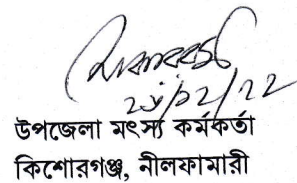 ২১/১২/২২
উপজেলা মৎস্য কর্মকর্তা
কিশোরগঞ্জ, নীলফামারী